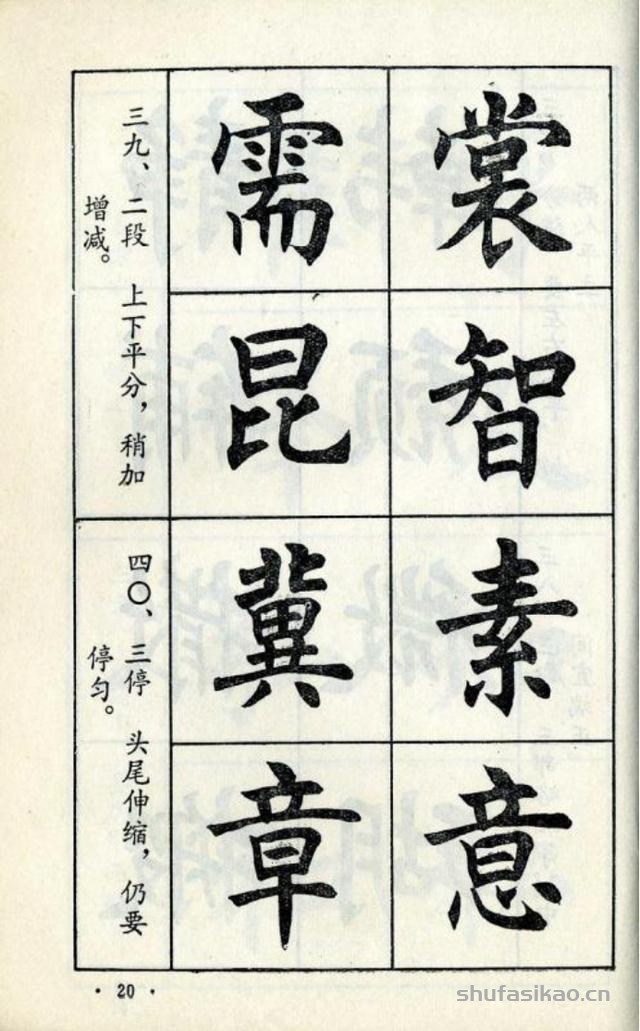 裳 需
智 昆
三九、二段 上下平分，稍加
增减。
素 冀
意 章
四〇、三停 头尾伸缩，仍要
停匀。
· 20 ·
shufasikao.cn